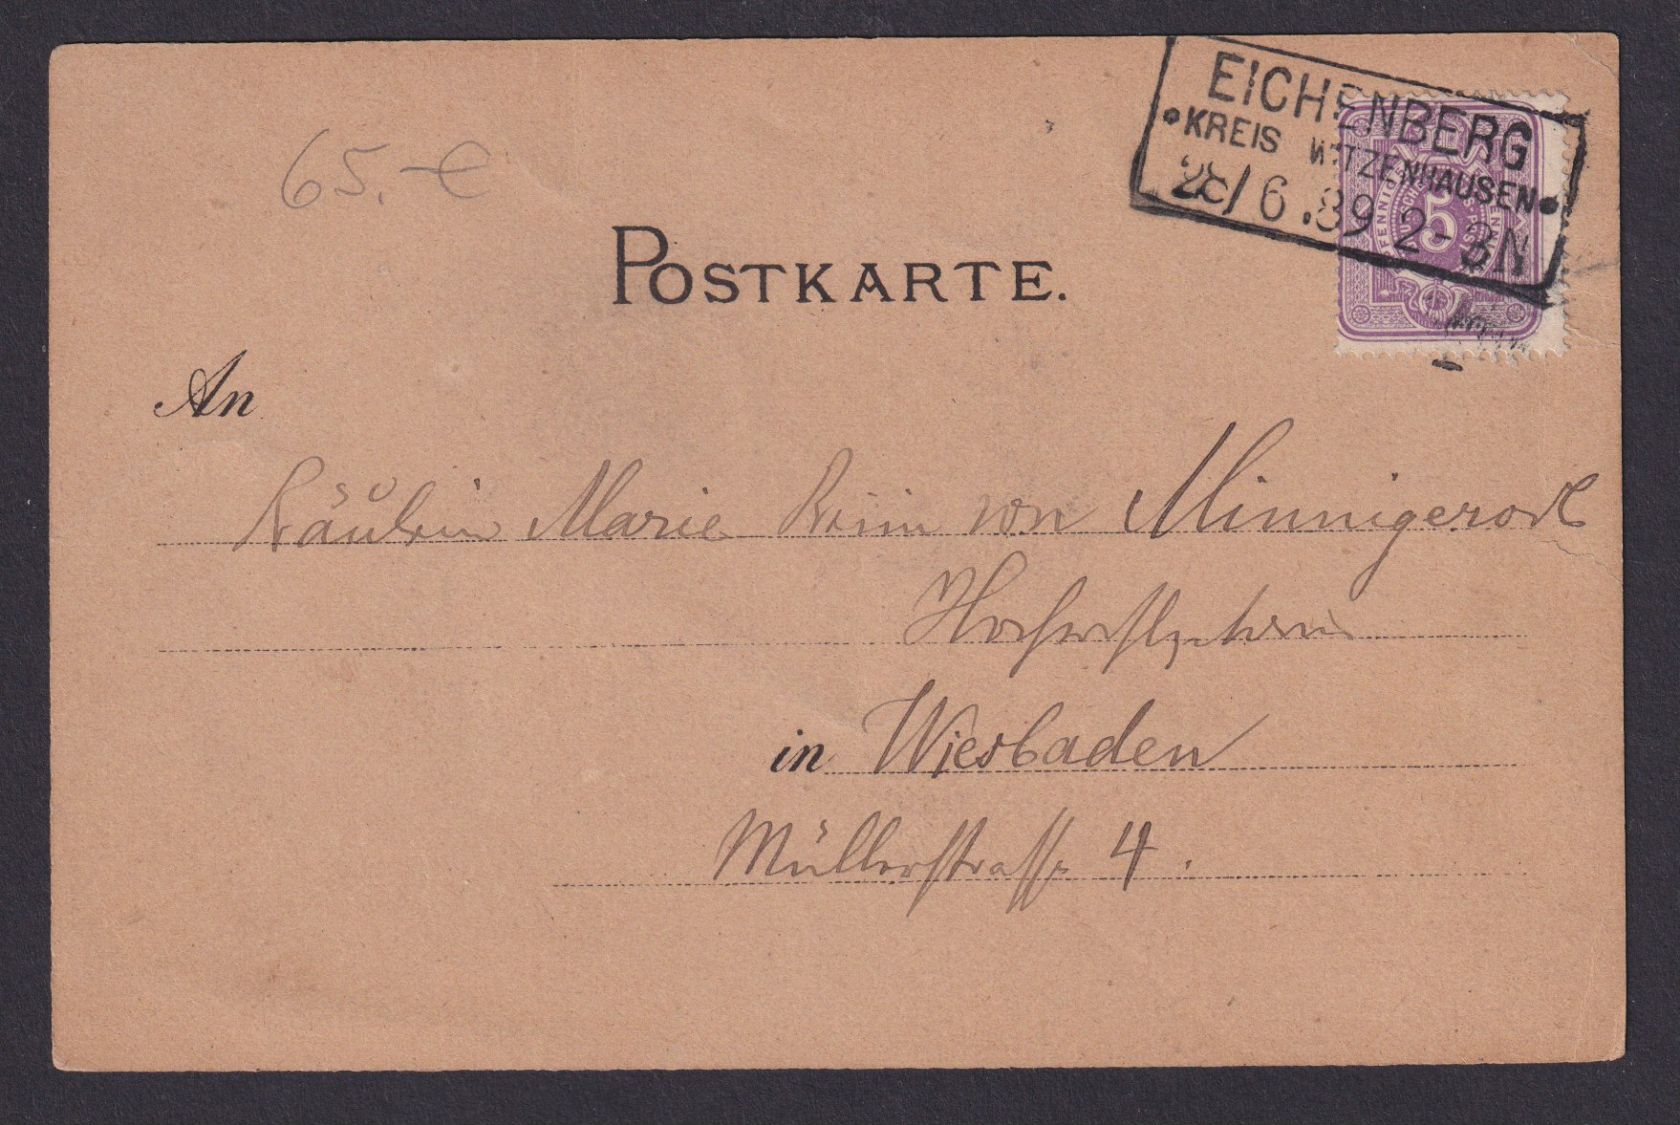 65.-€
EICHENBERG
KREIS WITZENHAUSEN
28/6.89 2-3N
5
POSTKARTE.
An
Fräulein Marie von Minnigerode
in Wiesbaden
Müllerstrasse 4.